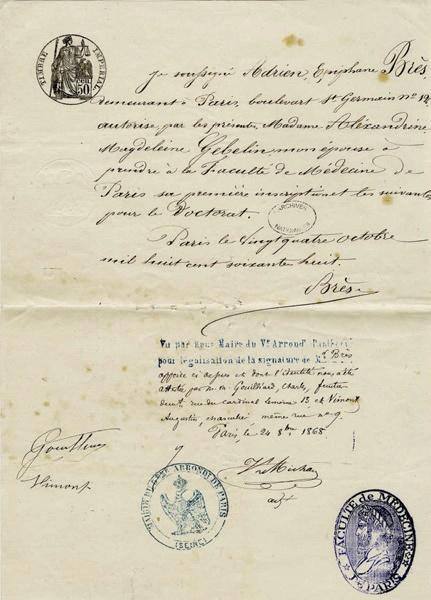 TIMBRE IMPÉRIAL
50
Je soussigné Adrien, Epiphane Brès,
demeurant à Paris, boulevart St Germain no 12
autorise, par les présentes, Madame Alexandrine
Magdeleine Gebelin, mon épouse à
prendre à la Faculté de Médecine de
Paris sa première inscription et les suivantes
pour le Doctorat.
ARCHIVES
NATIONALES
Paris le vingt quatre octobre
mil huit cent soixante huit.
Brès
Vu par Nous Maire du Ve Arrondt Panthéon
pour légalisation de la signature de M. Brès
apposée ci dessus et dont l'identité nous a été
attestée par M. M. Gouilliard, Charles,
demt rue du cardinal Lemoine 13 et Vimont
Augustin, même rue no 9.
Paris le 24 8bre 1868
Vimont
MAIRIE DU 5E ARRONDT DE PARIS
(SEINE)
FACULTÉ de MÉDECINE
De PARIS